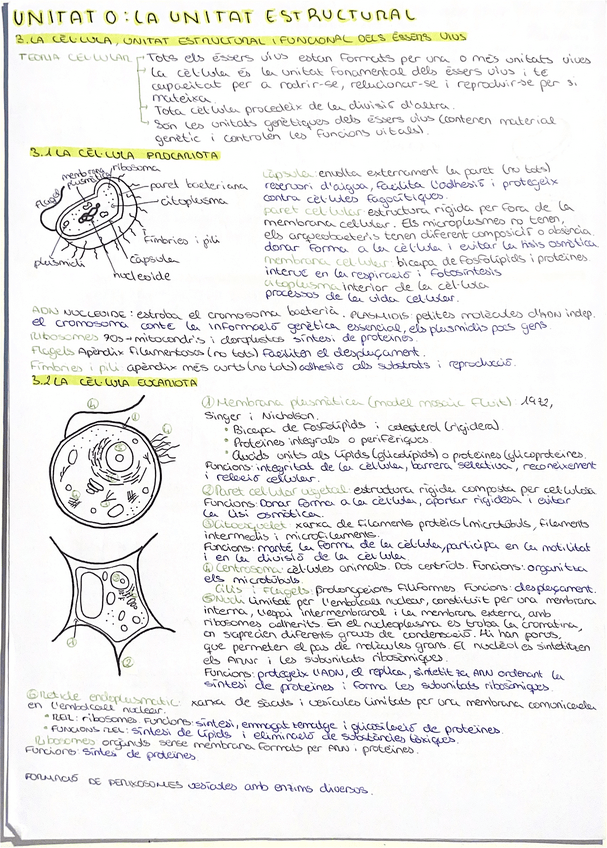 UNITAT 0: LA UNITAT ESTRUCTURAL
3. LA CÈL·LULA, UNITAT ESTRUCTURAL I FUNCIONAL DELS ÉSSERS VIUS
TEORIA CEL·LULAR Tots els éssers vius estan formats per una o més unitats vives
La cèl·lula és la unitat fonamental dels éssers vius i té
capacitat per a nodrir-se, relacionar-se i reproduir-se per si
mateixa.
Tota cèl·lula procedeix de la divisió d'altra.
Són les unitats genètiques dels éssers vius (contenen material
genètic i controlen les funcions vitals).
3.1 LA CÈL·LULA PROCARIOTA
ribosoma
membrana plasmàtica
flagel
paret bacteriana
citoplasma
Fímbries i pili
càpsula
plasmidi
nucleoide
càpsula: envolta externament la paret (no tots)
reservori d'aigua, facilita l'adhesió i protegeix
contra cèl·lules fagocítiques.
paret cel·lular estructura rígida per fora de la
membrana cel·lular. Els microplasmes no tenen,
els arqueobacteris tenen diferent composició o absència.
donar forma a la cèl·lula i evitar la lisis osmòtica
membrana cel·lular: bicapa de fosfolípids i proteïnes
intervé en la respiració i fotosíntesis
citoplasma interior de la cèl·lula
processos de la vida cel·lular.
ADN NUCLEOIDE: estroba el cromosoma bacterià. PLASMIDIS petites molècules d'ADN indep.
el cromosoma conté la informació genètica essencial, els plasmidis pocs gens.
Ribosomes 70s→mitocondris i cloroplastos síntesi de proteïnes.
Flagels Apèndix filamentosos (no tots) faciliten el desplaçament.
Fímbries i pili apèndix més curts (no tots) adhesió als substrats i reproducció.
3.2 LA CÈL·LULA EUCARIOTA
① Membrana plasmàtica (model mosaic fluït) 1972,
Singer i Nicholson.
• Bicapa de fosfolípids i colesterol (rigidesa).
• Proteïnes integrals o perifèriques.
• Glúcids units als lípids (glicolípids) o proteïnes (glicoproteïnes.
Funcions: integritat de la cèl·lula, barrera selectiva, reconeixement
i relació cel·lular.
② Paret cel·lular vegetal: estructura rígida composta per cel·lulosa
Funcions: Donar forma a la cèl·lula, aportar rigidesa i evitar
la lisi osmòtica.
③ Citoesquelet: xarxa de filaments protèics (microtúbuls, filaments
intermedis i microfilaments.
Funcions: manté la forma de la cèl·lula, participa en la motilitat
i en la divisió de la cèl·lula.
④ Centrosoma: cèl·lules animals. Dos centriols. Funcions: organitza
els microtúbuls.
Cilis i flagels: prolongacions filiformes Funcions: desplaçament.
⑤ Nucli Limitat per l'embolcall nuclear, constituït per una membrana
interna, l'espai intermembranal i la membrana externa, amb
ribosomes adherits. En el nucleoplasma es troba la cromatina,
on s'aprecien diferents graus de condensació. Hi han porus,
que permeten el pas de molècules grans. El nuclèol es sintetitzen
els ARNr i les subunitats ribosòmiques.
Funcions: protegeix l'ADN, el replica, sintetitza ARN ordenant la
síntesi de proteïnes i forma les subunitats ribosòmiques.
⑥ Reticle endoplasmàtic: xarxa de sàculs i vesícules limitats per una membrana comunicada
en l'embolcall nuclear.
• RER: ribosomes Funcions: síntesi, emmagatzematge i glicosilació de proteïnes.
• FUNCIONS REL: síntesi de lípids i eliminació de substàncies tòxiques.
Ribosomes orgànuls sense membrana formats per ARN i proteïnes.
Funcions: síntesi de proteïnes.
FORMACIÓ DE PEROXISOMES vesícules amb enzims diversos.